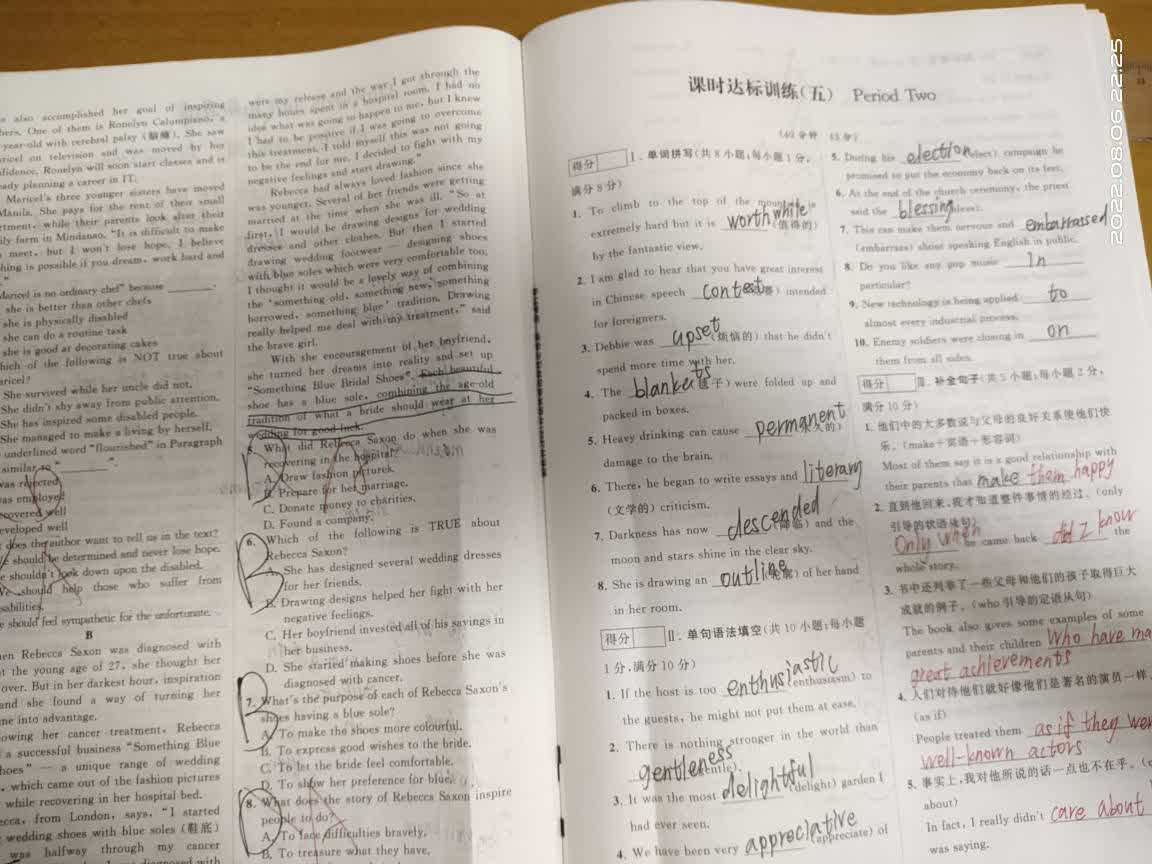 s also accomplished her goal of inspiring
hers. One of them is Ronelyn Calumpiano, a
year-old with cerebral palsy (脑瘫). She saw
aricel on television and was moved by her
nfidence. Ronelyn will soon start classes and is
ady planning a career in IT.
Maricel's three younger sisters have moved
Manila. She pays for the rent of their small
rtment, while their parents look after their
ily farm in Mindanao. "It is difficult to make
meet, but I won't lose hope. I believe
hing is possible if you dream, work hard and
Maricel is no ordinary chef" because ______.
she is better than other chefs
she is physically disabled
she can do a routine task
she is good at decorating cakes
hich of the following is NOT true about
aricel?
She survived while her uncle did not.
She didn't shy away from public attention.
She has inspired some disabled people.
She managed to make a living by herself.
underlined word "flourished" in Paragraph
similar to "______".
was rejected
was employed
recovered well
developed well
does the author want to tell us in the text?
e should be determined and never lose hope.
e shouldn't look down upon the disabled.
We should help those who suffer from
sabilities.
e should feel sympathetic for the unfortunate.
B
en Rebecca Saxon was diagnosed with
t the young age of 27, she thought her
over. But in her darkest hour, inspiration
and she found a way of turning her
ne into advantage.
owing her cancer treatment, Rebecca
a successful business "Something Blue
hoes" — a unique range of wedding
, which came out of the fashion pictures
while recovering in her hospital bed.
ecca, from London, says, "I started
wedding shoes with blue soles (鞋底)
was halfway through my cancer
were my release and the way I got through the
many hours spent in a hospital room. I had no
idea what was going to happen to me, but I knew
I had to be positive if I was going to overcome
this treatment. I told myself this was not going
to be the end for me. I decided to fight with my
negative feelings and start drawing."
Rebecca had always loved fashion since she
was younger. Several of her friends were getting
married at the time when she was ill. "So at
first, I would be drawing designs for wedding
dresses and other clothes. But then I started
drawing wedding footwear — designing shoes
with blue soles which were very comfortable too.
I thought it would be a lovely way of combining
the 'something old, something new, something
borrowed, something blue' tradition. Drawing
really helped me deal with my treatment," said
the brave girl.
With the encouragement of her boyfriend,
she turned her dreams into reality and set up
"Something Blue Bridal Shoes". Each beautiful
shoe has a blue sole, combining the age-old
tradition of what a bride should wear at her
wedding for good luck.
5. What did Rebecca Saxon do when she was
recovering in the hospital?
A. Draw fashion pictures.
B. Prepare for her marriage.
C. Donate money to charities.
D. Found a company.
6. Which of the following is TRUE about
Rebecca Saxon?
A. She has designed several wedding dresses
for her friends.
B. Drawing designs helped her fight with her
negative feelings.
C. Her boyfriend invested all of his savings in
her business.
D. She started making shoes before she was
diagnosed with cancer.
7. What's the purpose of each of Rebecca Saxon's
shoes having a blue sole?
A. To make the shoes more colourful.
B. To express good wishes to the bride.
C. To let the bride feel comfortable.
D. To show her preference for blue.
8. What does the story of Rebecca Saxon inspire
people to do?
A. To face difficulties bravely.
B. To treasure what they have.
课时达标训练(五) Period Two
(40分钟 45分)
得分 Ⅰ. 单词拼写(共8小题;每小题1分,
满分8分)
1. To climb to the top of the mountain is
extremely hard but it is worthwhile (值得的)
by the fantastic view.
2. I am glad to hear that you have great interest
in Chinese speech contest intended
for foreigners.
3. Debbie was upset (烦恼的) that he didn't
spend more time with her.
4. The blankets (毯子) were folded up and
packed in boxes.
5. Heavy drinking can cause permanent (永久的)
damage to the brain.
6. There, he began to write essays and literary
(文学的) criticism.
7. Darkness has now descended (降临) and the
moon and stars shine in the clear sky.
8. She is drawing an outline (轮廓) of her hand
in her room.
得分 Ⅱ. 单句语法填空(共10小题;每小题
1分,满分10分)
1. If the host is too enthusiastic (enthusiasm) to
the guests, he might not put them at ease.
2. There is nothing stronger in the world than
gentleness (gentle).
3. It was the most delightful (delight) garden I
had ever seen.
4. We have been very appreciative (appreciate) of
5. During his election (elect) campaign he
promised to put the economy back on its feet.
6. At the end of the church ceremony, the priest
said the blessing (bless).
7. This can make them nervous and embarrassed
(embarrass) about speaking English in public.
8. Do you like any pop music In
particular?
9. New technology is being applied to
almost every industrial process.
10. Enemy soldiers were closing in on
them from all sides.
得分 Ⅲ. 补全句子(共5小题;每小题2分,
满分10分)
1. 他们中的大多数说与父母的良好关系使他们快
乐。(make+宾语+形容词)
Most of them say it is a good relationship with
their parents that make them happy
2. 直到他回来,我才知道整件事情的经过。(only
引导的状语从句)
Only when he came back did I know the
whole story.
3. 书中还列举了一些父母和他们的孩子取得巨大
成就的例子。(who 引导的定语从句)
The book also gives some examples of some
parents and their children who have ma
great achievements
4. 人们对待他们就好像他们是著名的演员一样。
(as if)
People treated them as if they wer
well-known actors
5. 事实上,我对他所说的话一点也不在乎。(c
about)
In fact, I really didn't care about
was saying.
2022.08.06 22:25